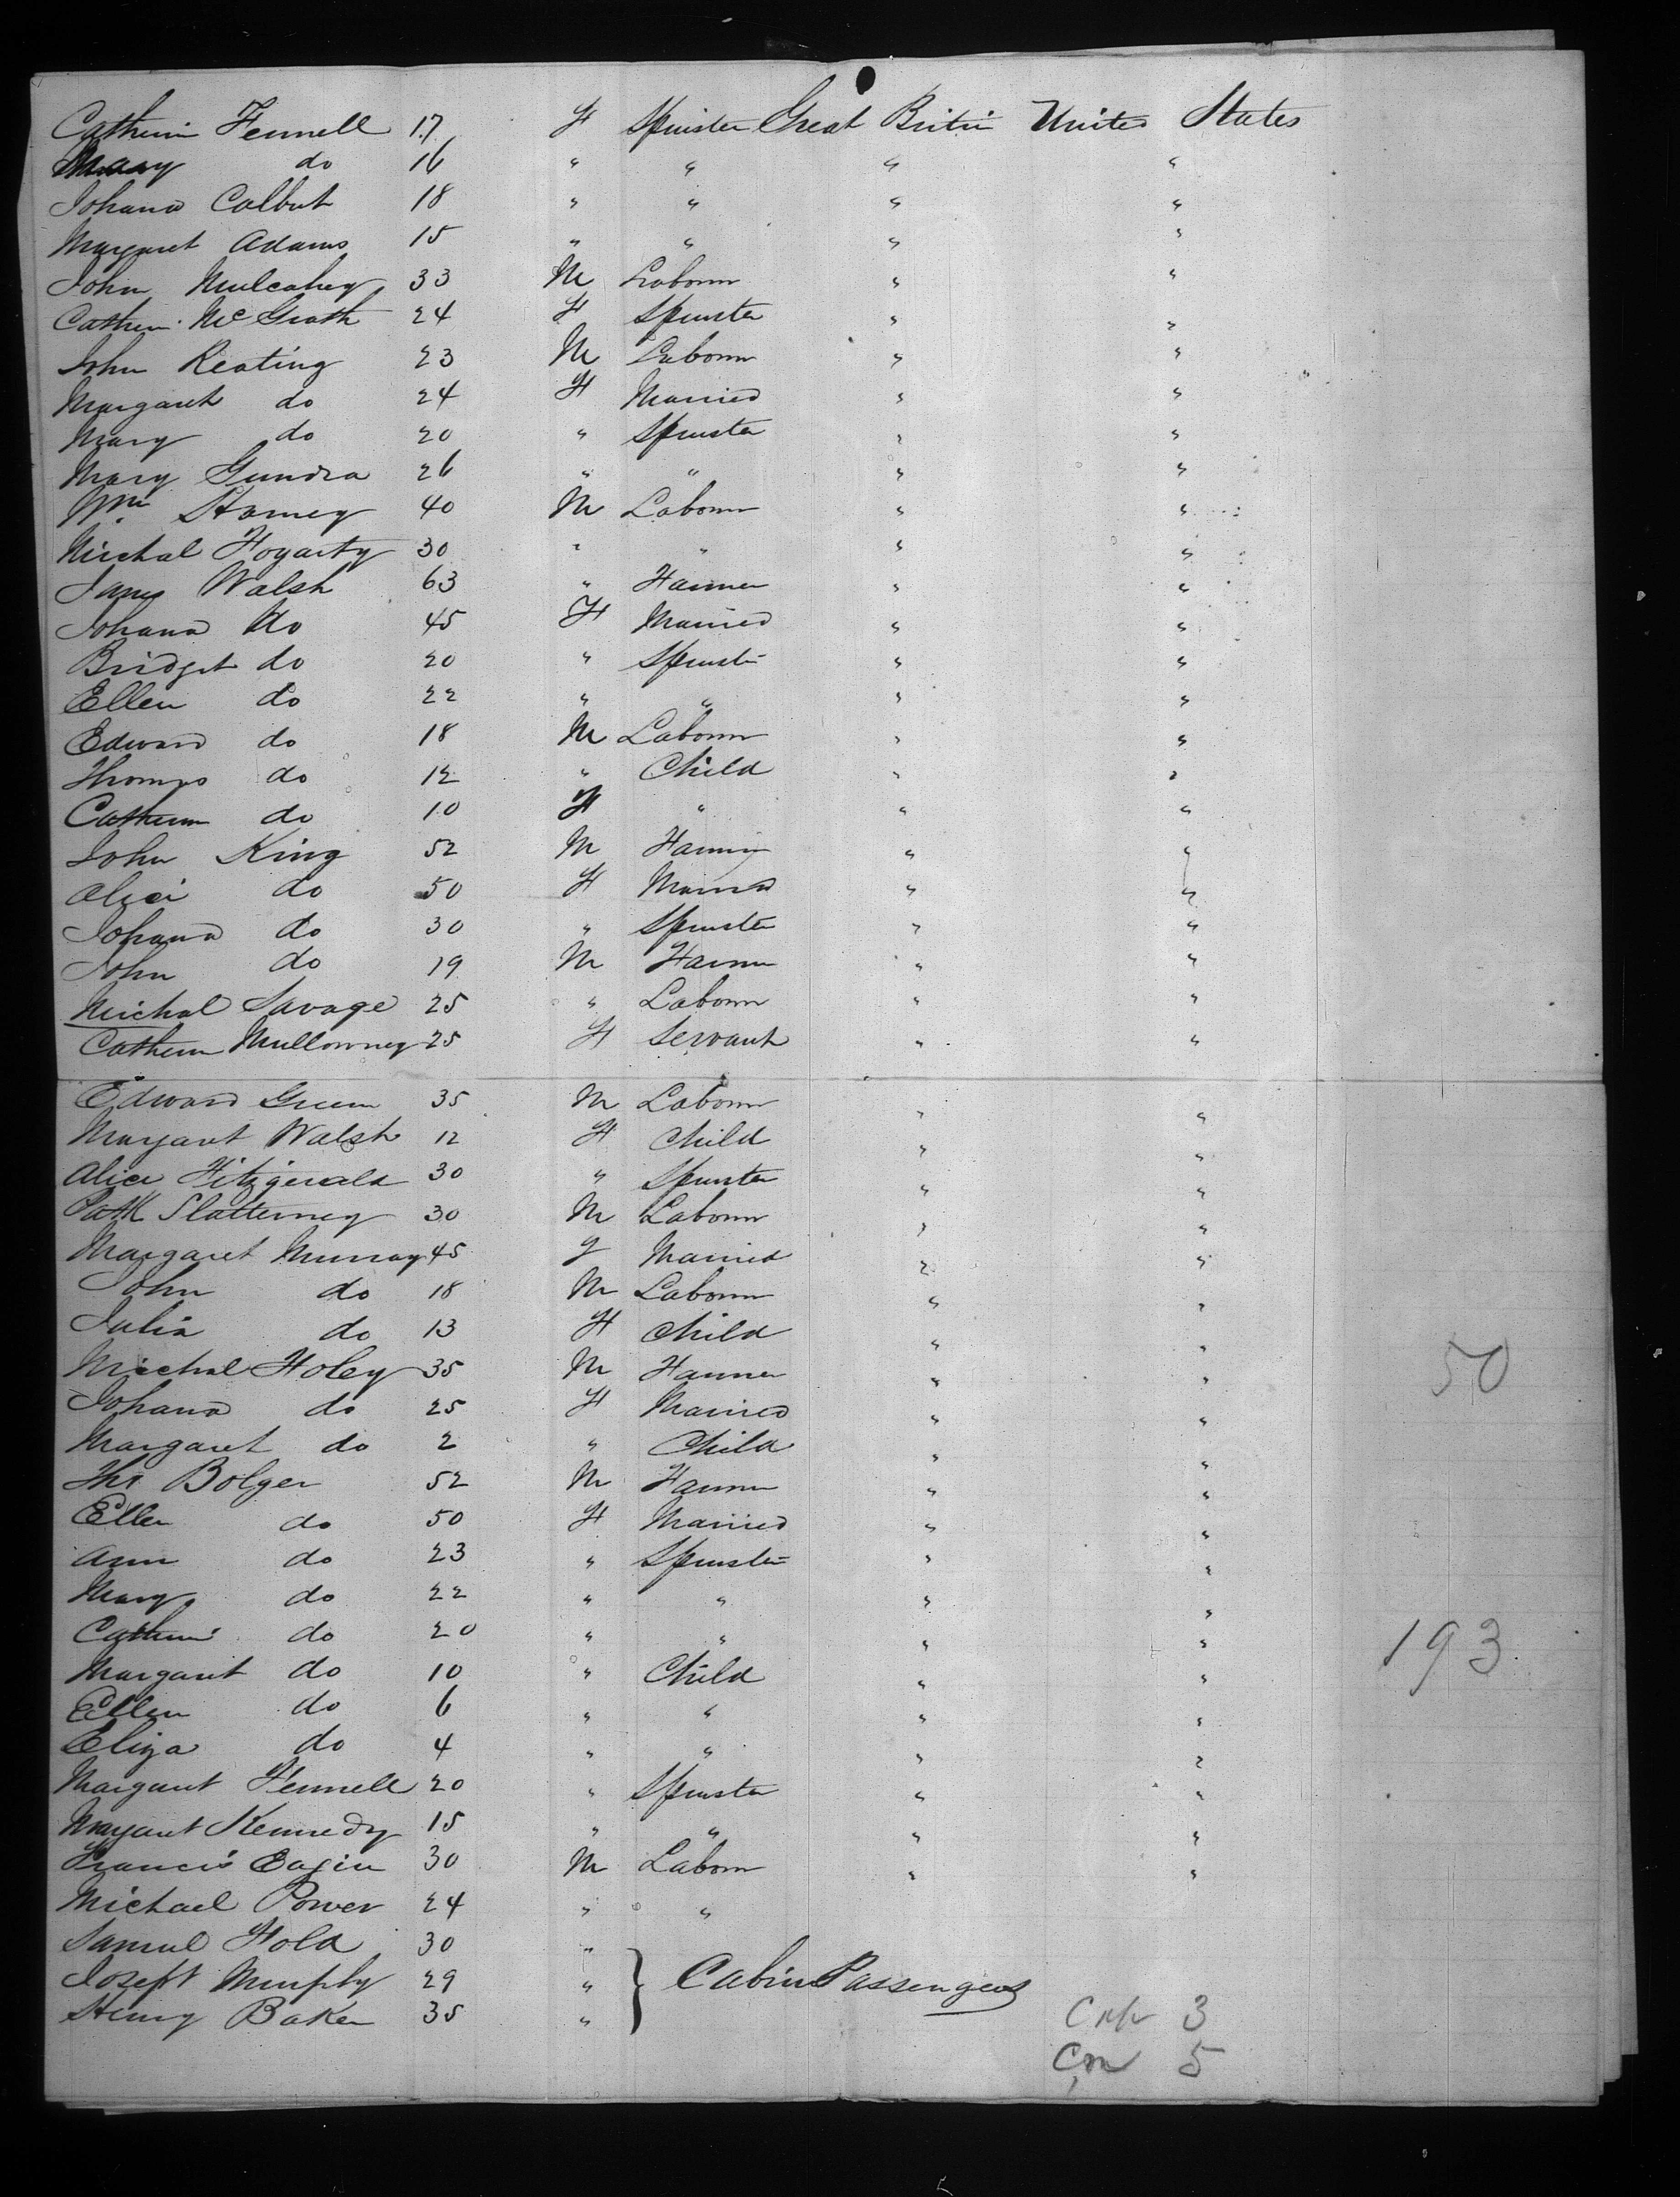 Catherin Fennell 17 F Spinster Great Britin United States
Mary do 16 " " " "
Johana Calbut 18 " " " "
Margaret Adams 15 " " " "
John Mulcahey 33 M Labourr " "
Catherin McGrath 24 F Spinster " "
John Keating 23 M Labourr " "
Margaret do 24 F Married " "
Mary do 20 " Spinster " "
Mary Gundra 26 " " " "
Wm Harney 40 M Labourr " "
Michal Fogarty 30 " " " "
James Walsh 63 " Farmer " "
Johana do 45 F Married " "
Bridget do 20 " Spinster " "
Ellen do 22 " " " "
Edward do 18 M Labourr " "
Thomas do 12 " Child " "
Catherin do 10 F " " "
John King 52 M Farmer " "
Alice do 50 F Married " "
Johana do 30 " Spinster " "
John do 19 M Farmer " "
Michal Savage 25 " Labourr " "
Catherin Mullowney 25 F Servant " "
Edward Green 35 M Labourr " "
Margaret Walsh 12 F Child " "
Alice Fitzgerald 30 " Spinster " "
Patk Slatterney 30 M Labourr " "
Margaret Murray 45 F Married " "
John do 18 M Labourr " "
Julia do 13 F Child " "
Michal Foley 35 M Farmer " " 50
Johana do 25 F Married " "
Margaret do 2 " Child " "
Ths Bolger 52 M Farmer " "
Ellen do 50 F Married " "
Ann do 23 " Spinster " "
Mary do 22 " " " "
Catherin do 20 " " " " 193
Margaret do 10 " Child " "
Ellen do 6 " " " "
Eliza do 4 " " " "
Margaret Fennell 20 " Spinster " "
Margaret Kennedy 15 " " " "
Francis Eagin 30 M Labourr " "
Michael Power 24 " "
Samuel Fold 30 "
Joseph Murphy 29 " } Cabin Passengers
Henry Baker 35 "
3
5